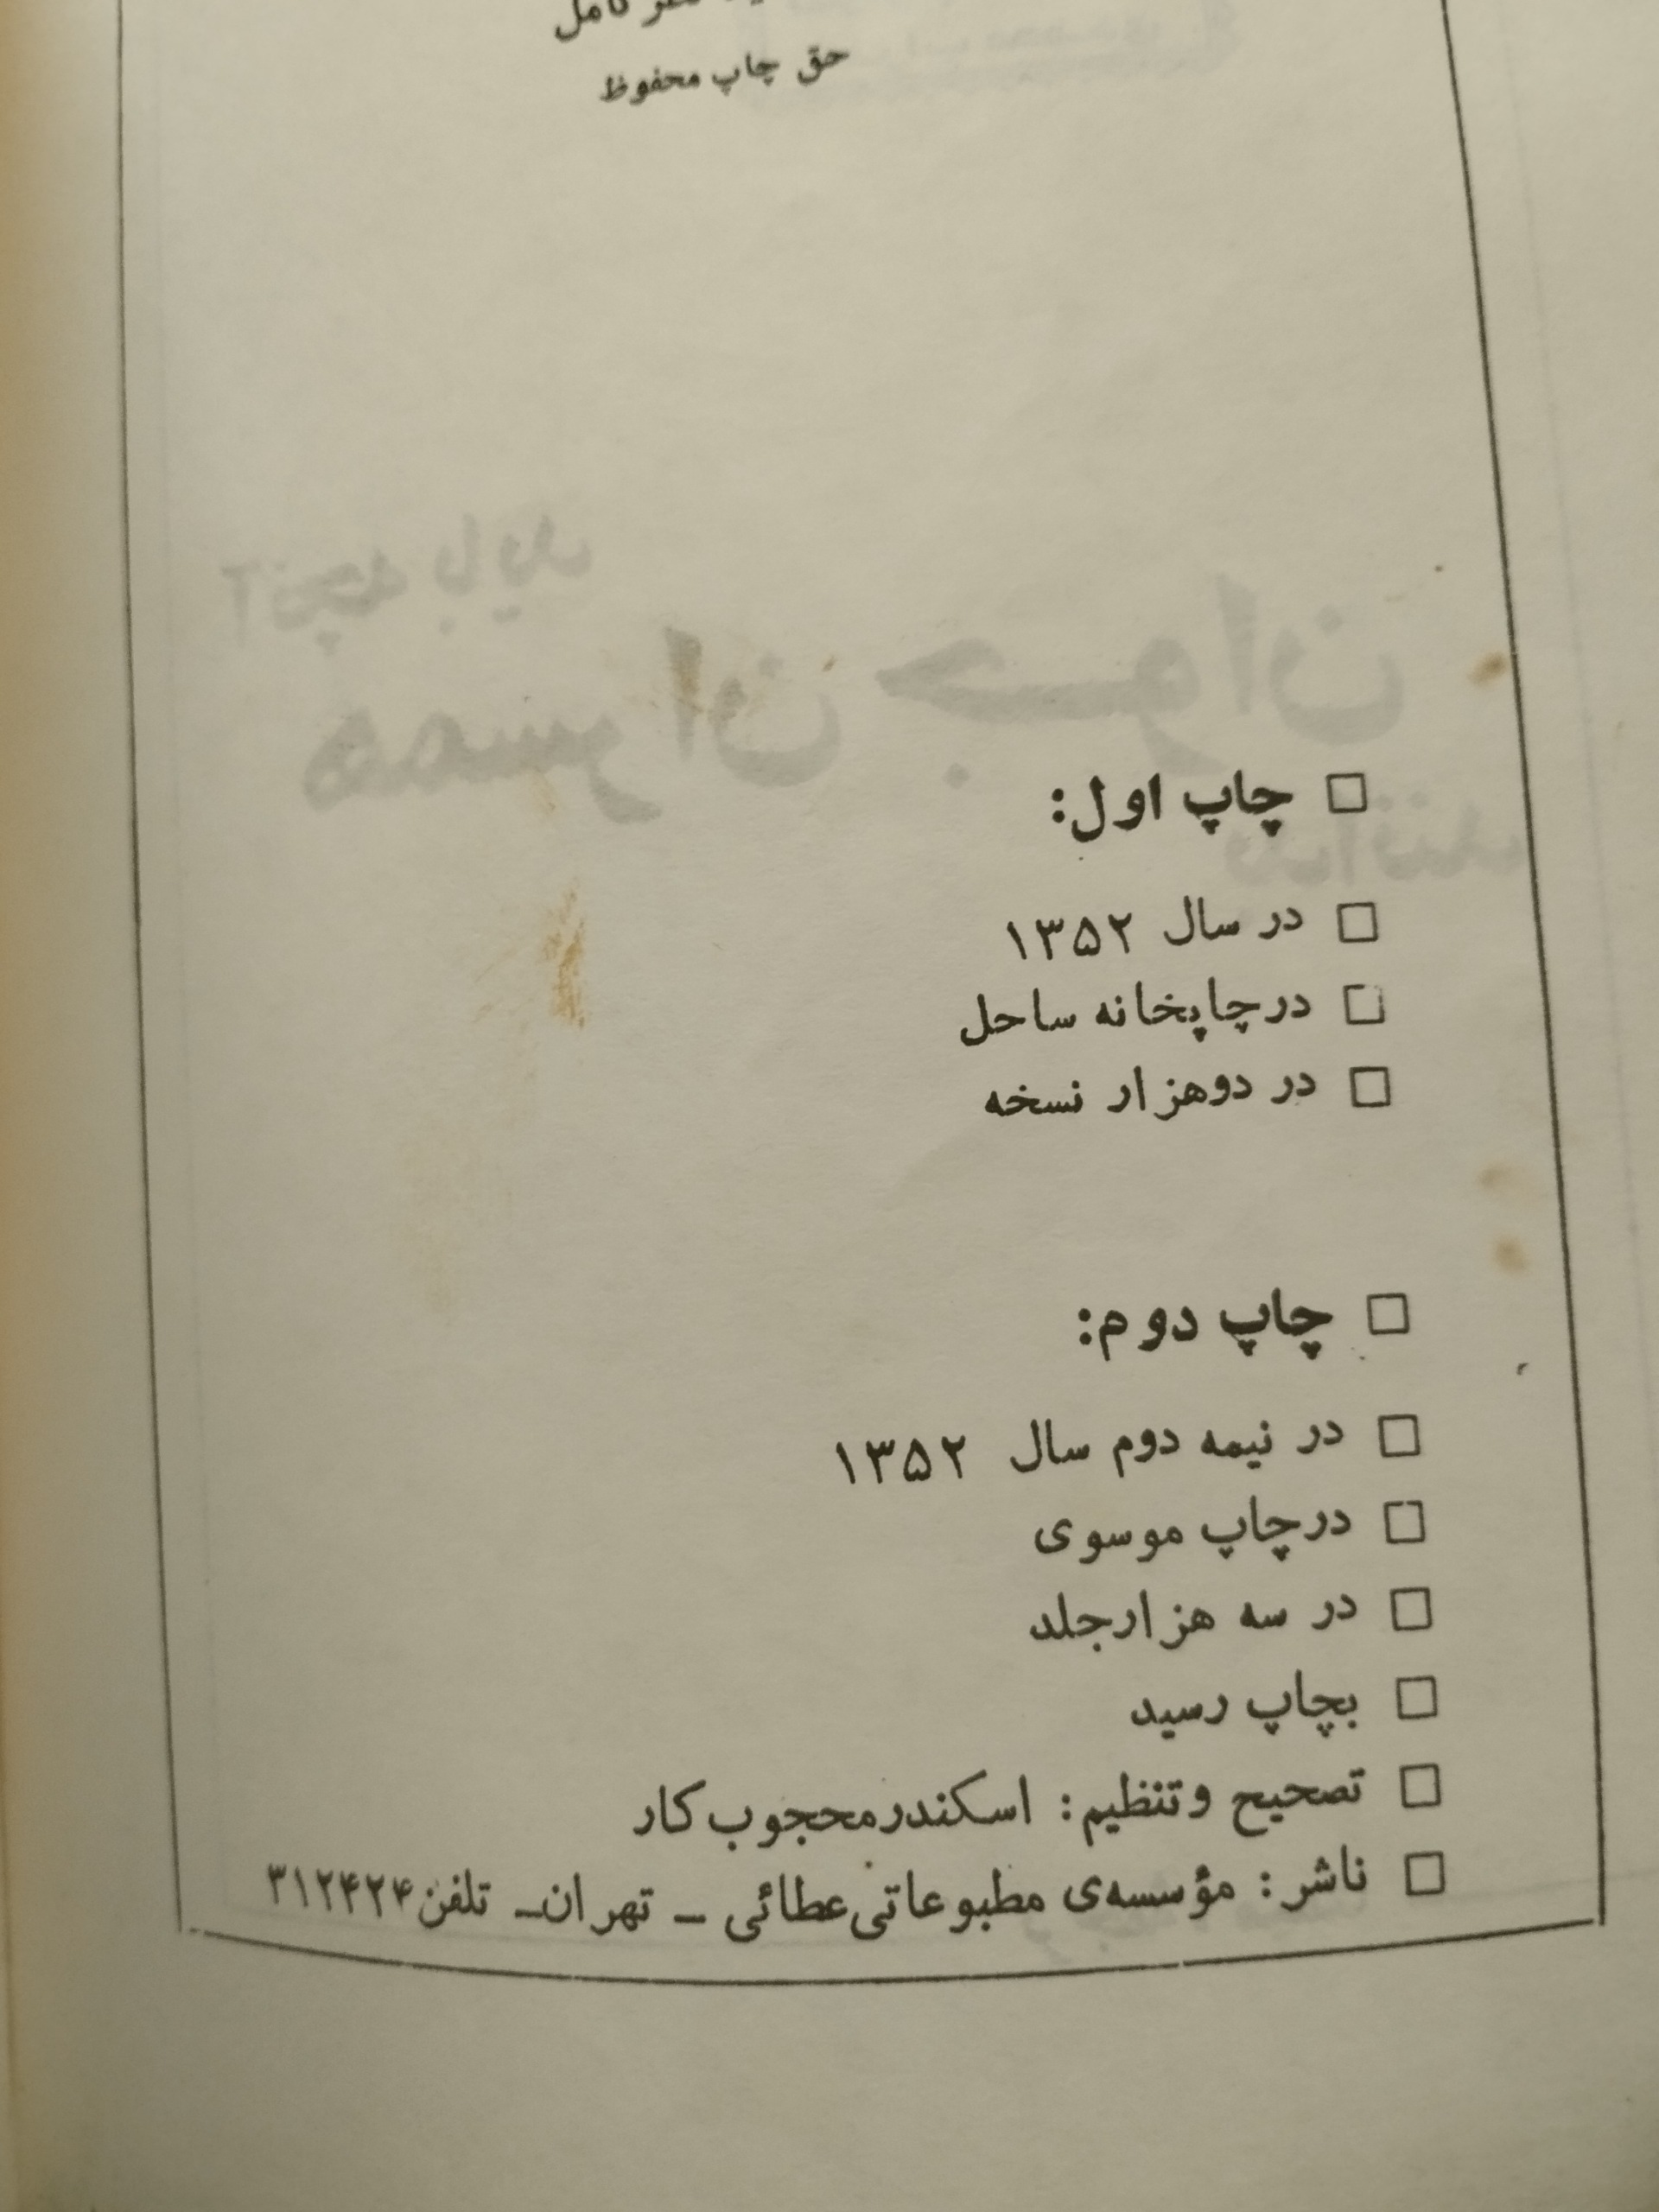 کامل
حق چاپ محفوظ
آنچه باید
همسران جوان
بدانند
□ چاپ اول:
□ در سال ۱۳۵۲
□ درچاپخانه ساحل
□ در دوهزار نسخه
□ چاپ دوم:
□ در نیمه دوم سال ۱۳۵۲
□ درچاپ موسوی
□ در سه هزارجلد
□ بچاپ رسید
□ تصحیح وتنظیم: اسکندرمحجوب‌کار
□ ناشر: مؤسسه‌ی مطبوعاتی‌عطائی – تهران– تلفن۳۱۲۴۲۴